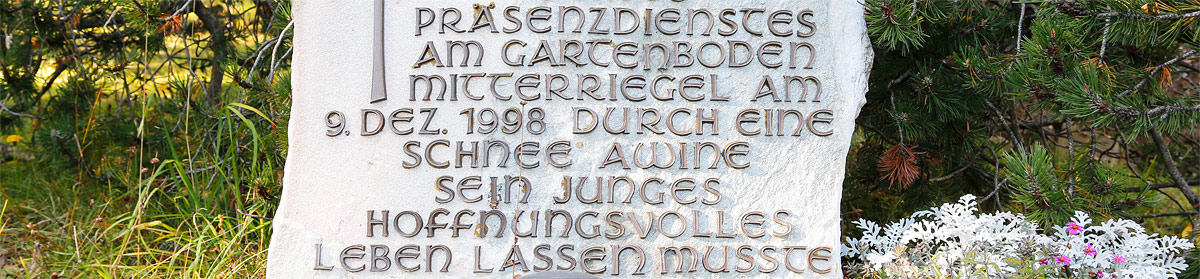 PRÄSENZDIENSTES
AM GARTENBODEN
MITTERRIEGEL AM
9. DEZ. 1998 DURCH EINE
SCHNEE AWINE
SEIN JUNGES
HOFFNUNGSVOLLES
LEBEN LASSEN MUSSTE